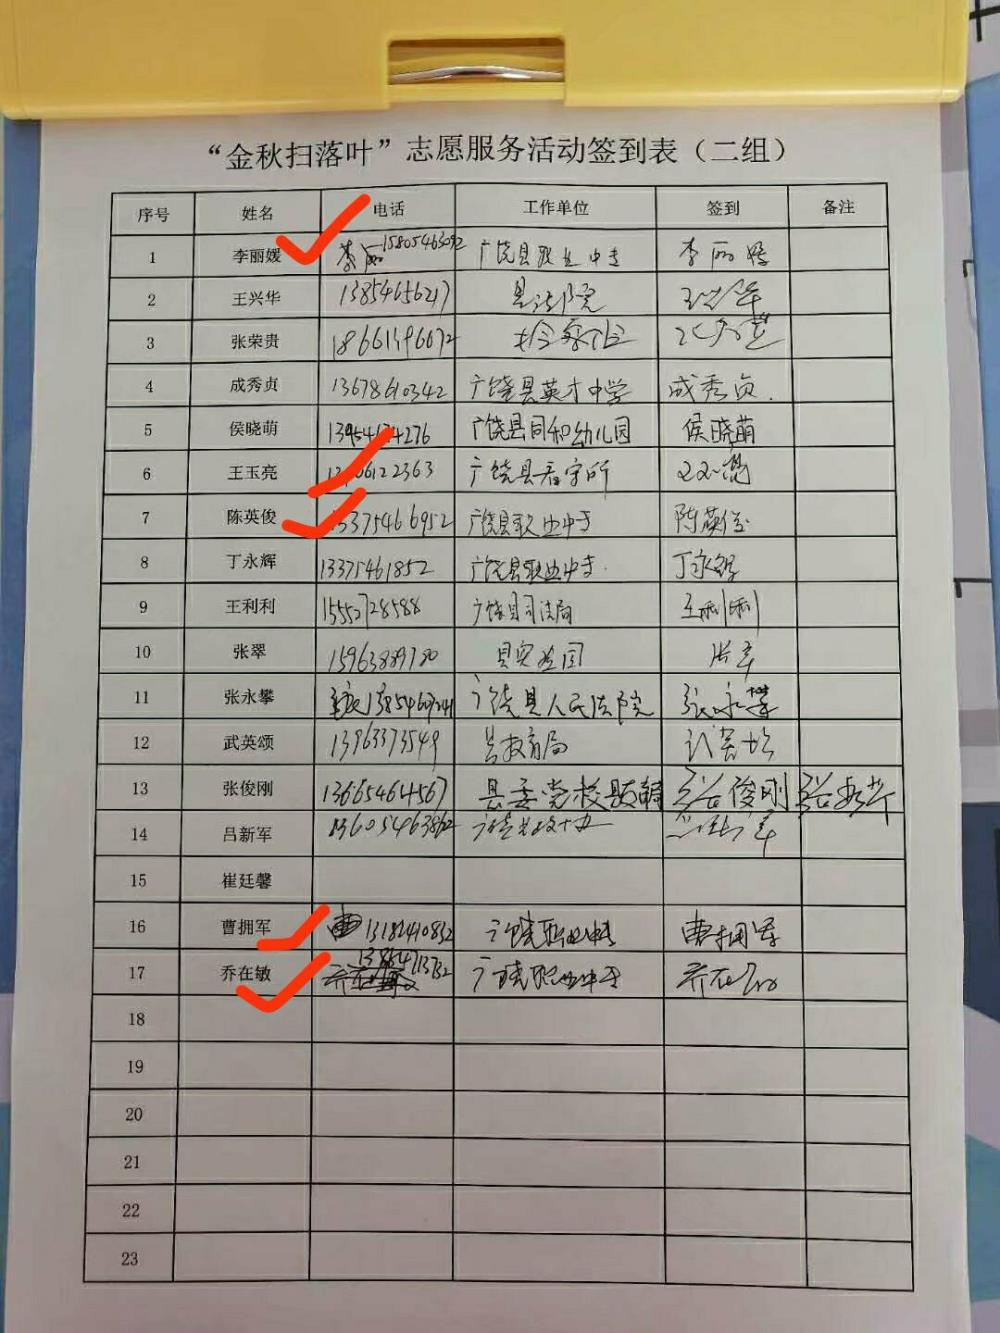 “金秋扫落叶”志愿服务活动签到表（二组）
序号 姓名 电话 工作单位 签到 备注
1 李丽媛 15805463092 广饶县职业中专 李丽媛
2 王兴华 13854656217 县法院 王兴华
3 张荣贵 检察院
4 成秀贞 13678610342 广饶县英才中学 成秀贞.
5 侯晓萌 广饶县同和幼儿园 侯晓萌
6 王玉亮 广饶县看守所 王玉亮
7 陈英俊 13375466952 广饶县职业中专 陈英俊
8 丁永辉 13375461852 广饶县职业中专. 丁永辉
9 王利利 15552728588 广饶县司法局 王利利
10 张翠 15963889780 县实验园 张翠
11 张永攀 广饶县人民法院 张永攀
12 武英颂 13963373549 县教育局 武英颂
13 张俊刚 13665464567 县委党校 张俊刚
14 吕新军 吕新军
15 崔廷馨
16 曹拥军 13181410832 广饶职业中专 曹拥军
17 乔在敏 广饶职业中专 乔在敏
18
19
20
21
22
23